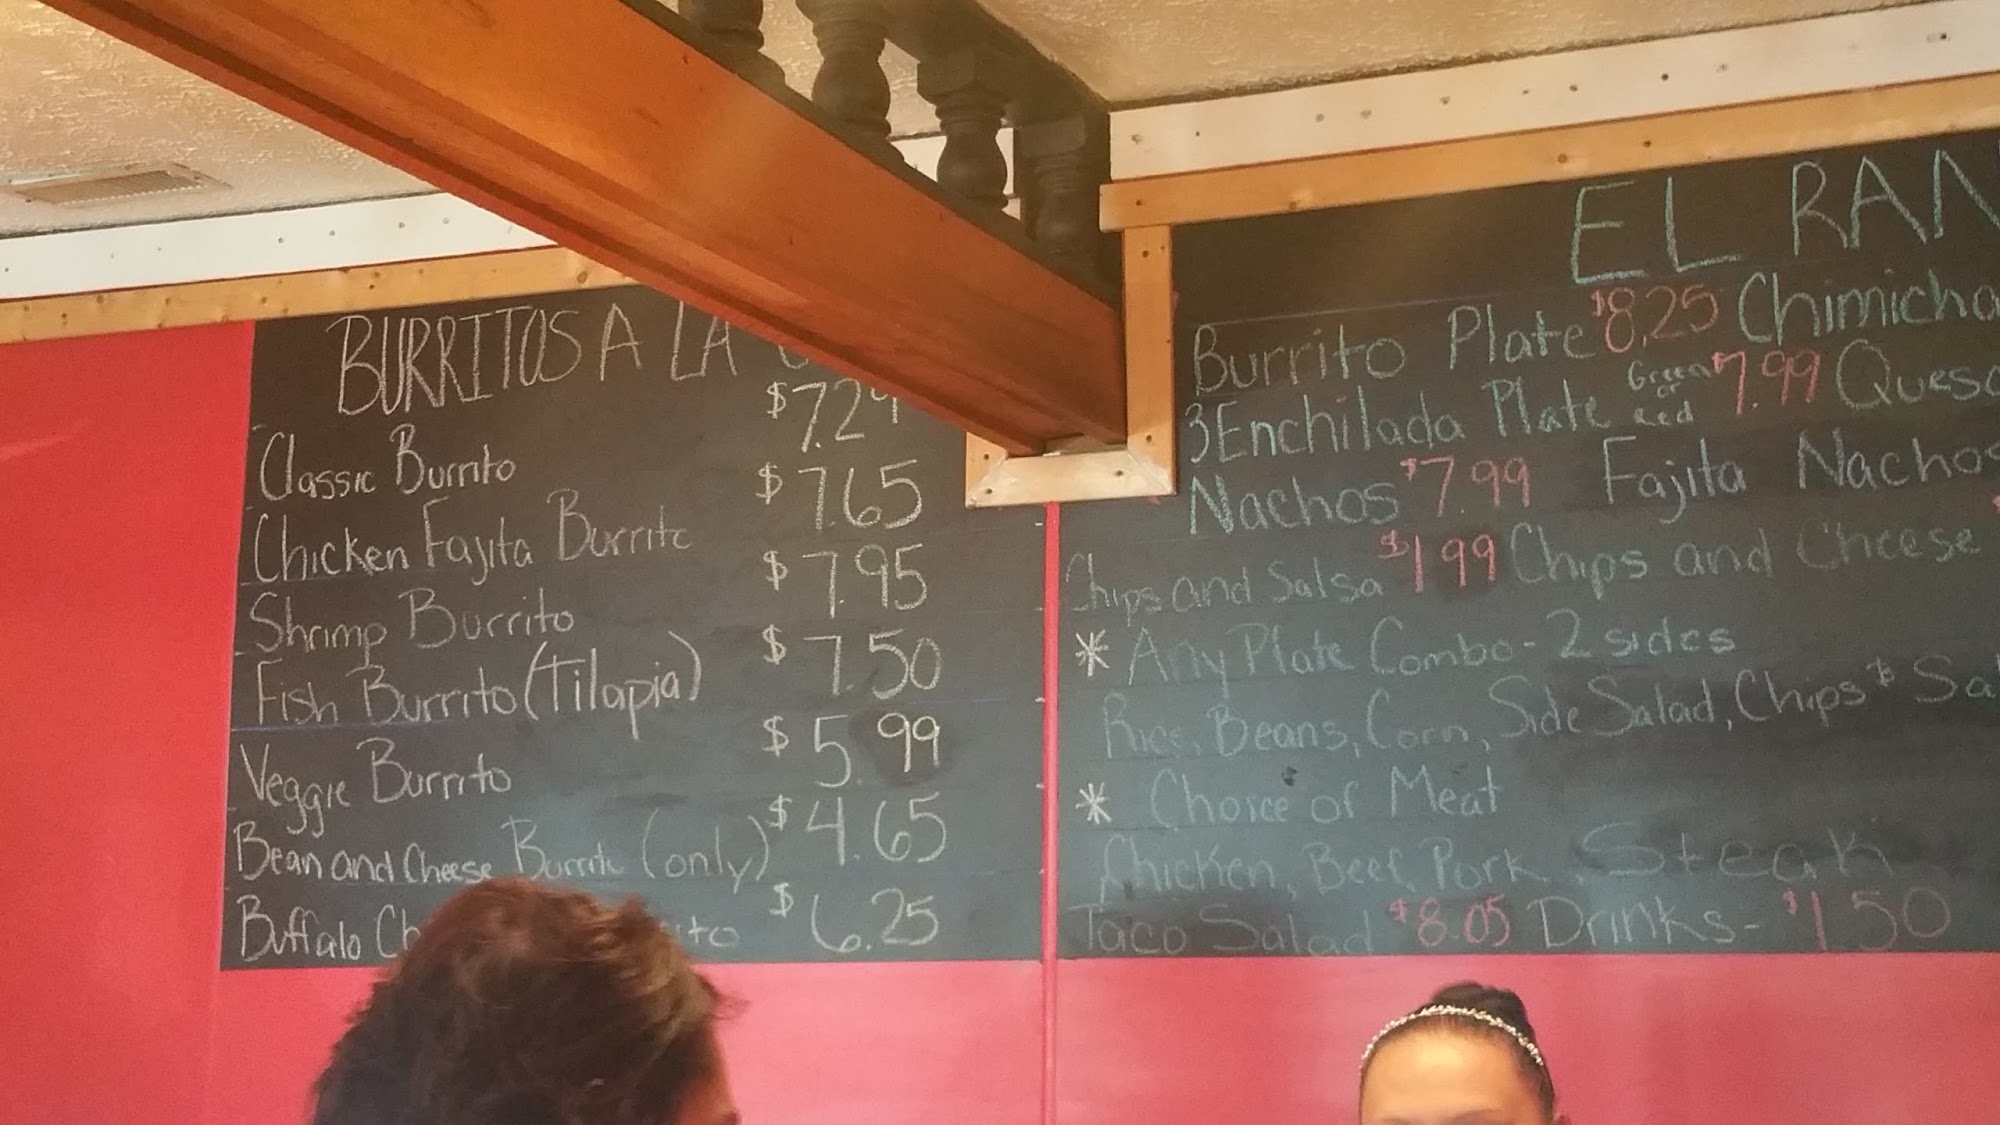 BURRITOS A LA
Classic Burrito $7.29
Chicken Fajita Burrito $7.65
Shrimp Burrito $7.95
Fish Burrito (Tilapia) $7.50
Veggie Burrito $5.99
Bean and Cheese Burrito (only) $4.65
Buffalo $6.25
EL RAN
Burrito Plate $8.25 Chimicha
3 Enchilada Plate Green or Red $7.99 Quesa
Nachos $7.99 Fajita Nachos
Chips and Salsa $1.99 Chips and Cheese
* Any Plate Combo - 2 sides
Rice, Beans, Corn, Side Salad, Chips & Sal
* Choice of Meat
Chicken, Beef, Pork, Steak
Taco Salad $8.05 Drinks - $1.50